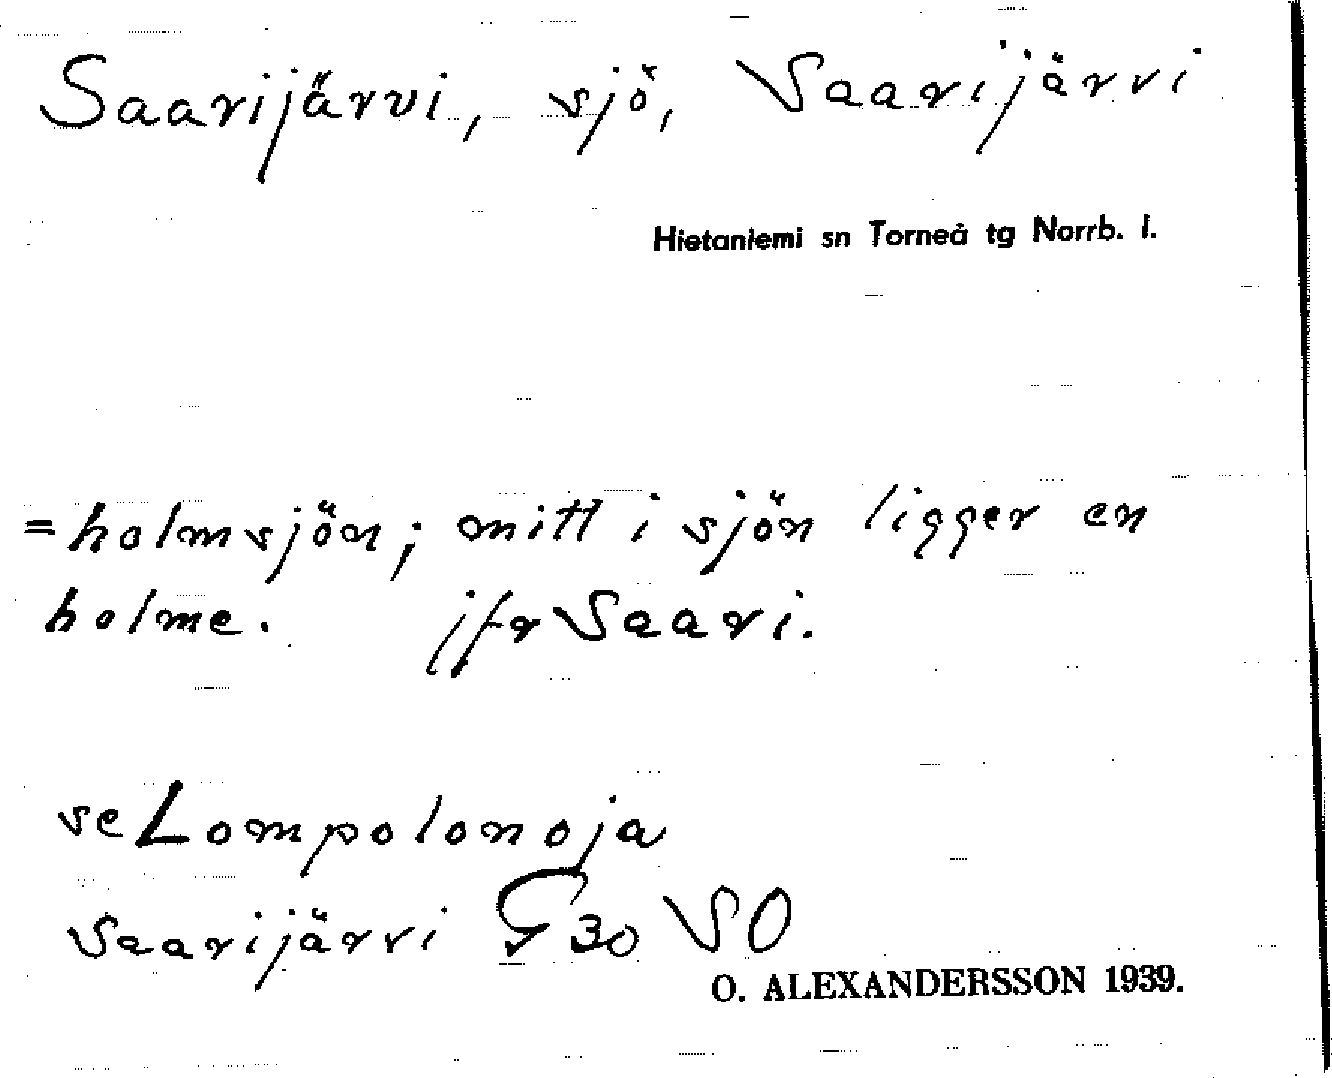 Saarijärvi, sjö, Saarijärvi
Hietaniemi sn Torneå tg Norrb. l.
=holmsjön; mitt i sjön ligger en
holme. jfr Saari.
se Lompolonoja
Saarijärvi G 30 SO
O. ALEXANDERSSON 1939.